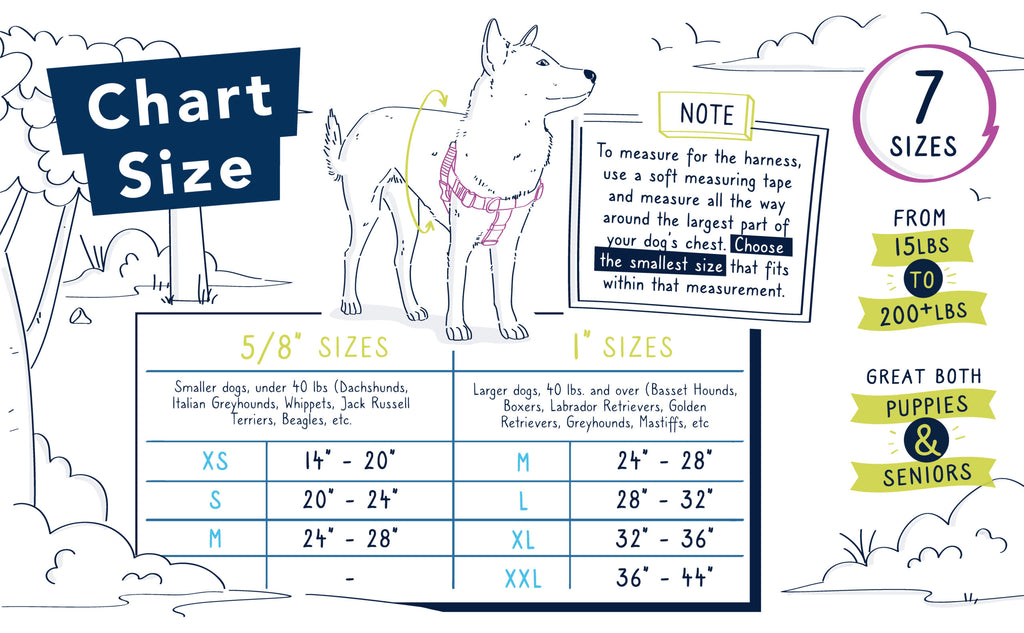 Chart
Size
NOTE
To measure for the harness,
use a soft measuring tape
and measure all the way
around the largest part of
your dog's chest. Choose
the smallest size that fits
within that measurement.
7
SIZES
FROM
15LBS
TO
200+LBS
GREAT BOTH
PUPPIES
&
SENIORS
5/8" SIZES
Smaller dogs, under 40 lbs (Dachshunds,
Italian Greyhounds, Whippets, Jack Russell
Terriers, Beagles, etc.
XS 14" - 20"
S 20" - 24"
M 24" - 28"
-
1" SIZES
Larger dogs, 40 lbs. and over (Basset Hounds,
Boxers, Labrador Retrievers, Golden
Retrievers, Greyhounds, Mastiffs, etc
M 24" - 28"
L 28" - 32"
XL 32" - 36"
XXL 36" - 44"